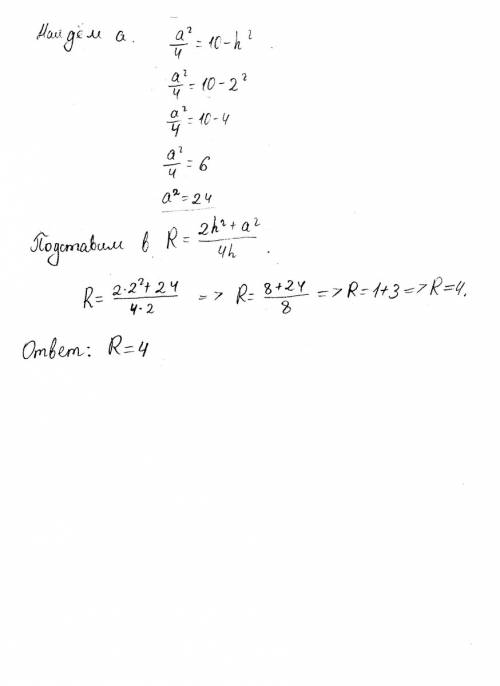 Найдём a. a²/4 = 10 - h².
a²/4 = 10 - 2²
a²/4 = 10 - 4
a²/4 = 6
a² = 24
Подставим в R = (2h² + a²)/4h.
R = (2·2² + 24)/(4·2) => R = (8+24)/8 => R = 1+3 => R = 4.
Ответ: R = 4